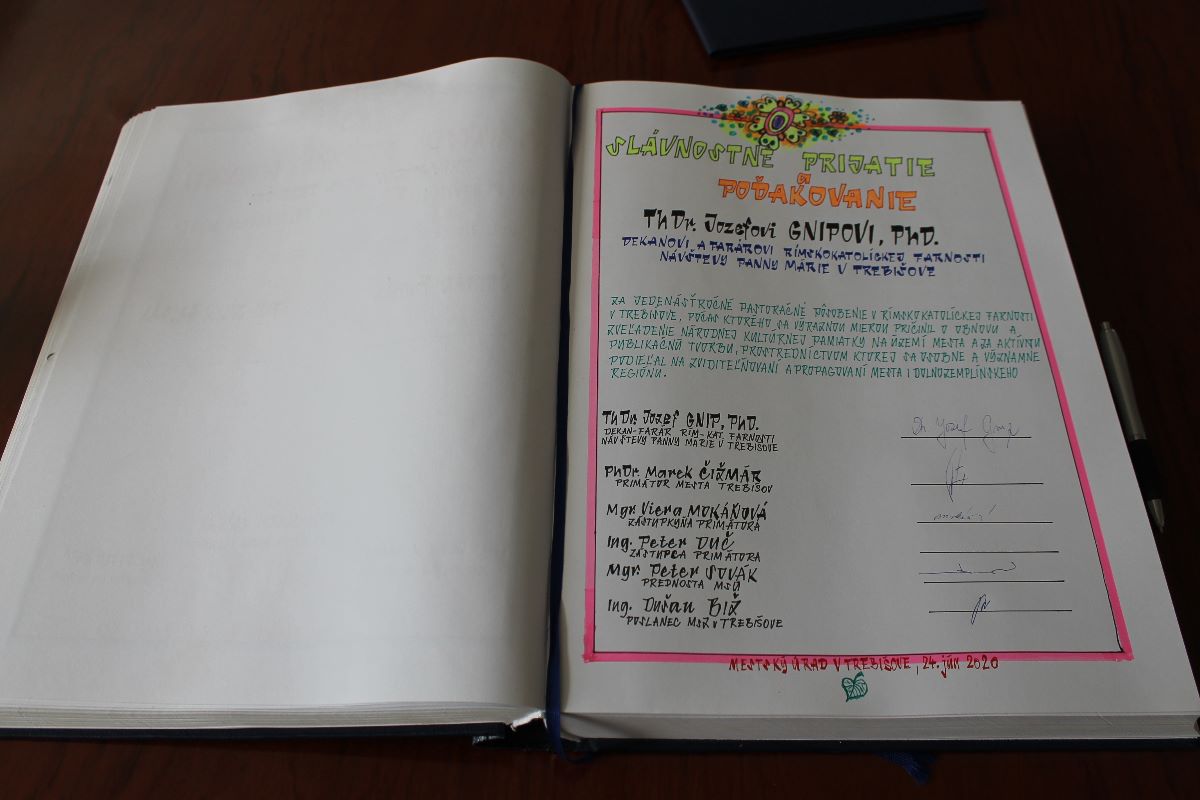 SLÁVNOSTNÉ PRIJATIE
a
POĎAKOVANIE
ThDr. Jozefovi GNIPOVI, PhD.
DEKANOVI A FARÁROVI RÍMSKOKATOLÍCKEJ FARNOSTI
NÁVŠTEVY PANNY MÁRIE V TREBIŠOVE
ZA JEDENÁSŤROČNÉ PASTORAČNÉ PÔSOBENIE V RÍMSKOKATOLÍCKEJ FARNOSTI
V TREBIŠOVE, POČAS KTORÉHO SA VÝRAZNOU MIEROU PRIČINIL O OBNOVU A
ZVEĽADENIE NÁRODNEJ KULTÚRNEJ PAMIATKY NA ÚZEMÍ MESTA A ZA AKTÍVNU
PUBLIKAČNÚ TVORBU, PROSTREDNÍCTVOM KTOREJ SA OSOBNE A VÝZNAMNE
PODIEĽAL NA ZVIDITEĽŇOVANÍ A PROPAGOVANÍ MESTA I DOLNOZEMPLÍNSKEHO
REGIÓNU.
ThDr. Jozef GNIP, PhD. Dr. Jozef Gnip
DEKAN-FARÁR RÍM-KAT. FARNOSTI
NÁVŠTEVY PANNY MÁRIE V TREBIŠOVE
PhDr. Marek ČIŽMÁR
PRIMÁTOR MESTA TREBIŠOV
Mgr. Viera MOKÁŇOVÁ
ZÁSTUPKYŇA PRIMÁTORA
Ing. Peter DUČ
ZÁSTUPCA PRIMÁTORA
Mgr. Peter SOVÁK
PREDNOSTA MSÚ
Ing. Dušan BIŽ
POSLANEC MSZ V TREBIŠOVE
MESTSKÝ ÚRAD V TREBIŠOVE, 24. jún 2020